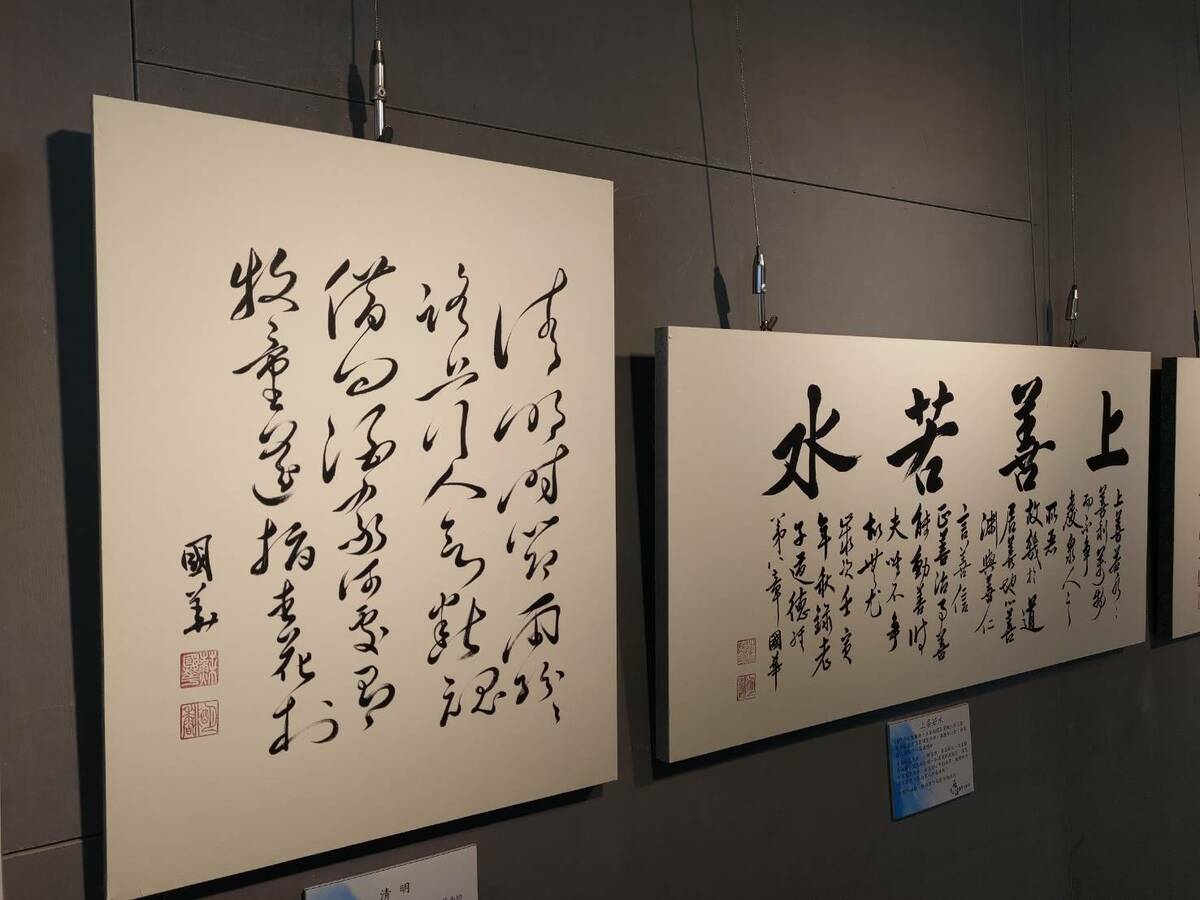 清明時節雨紛〻
路上行人欲斷魂
借問酒家何處有
牧童遙指杏花村
國華
清明
上善若水
上善若水〻
善利萬物
而不爭
處眾人之
所惡
故幾於道
居善地心善
淵與善仁
言善信
正善治事善
能動善時
夫唯不爭
故無尤
歲次壬寅
年秋錄老
子道德經
第八章 國華
上善若水